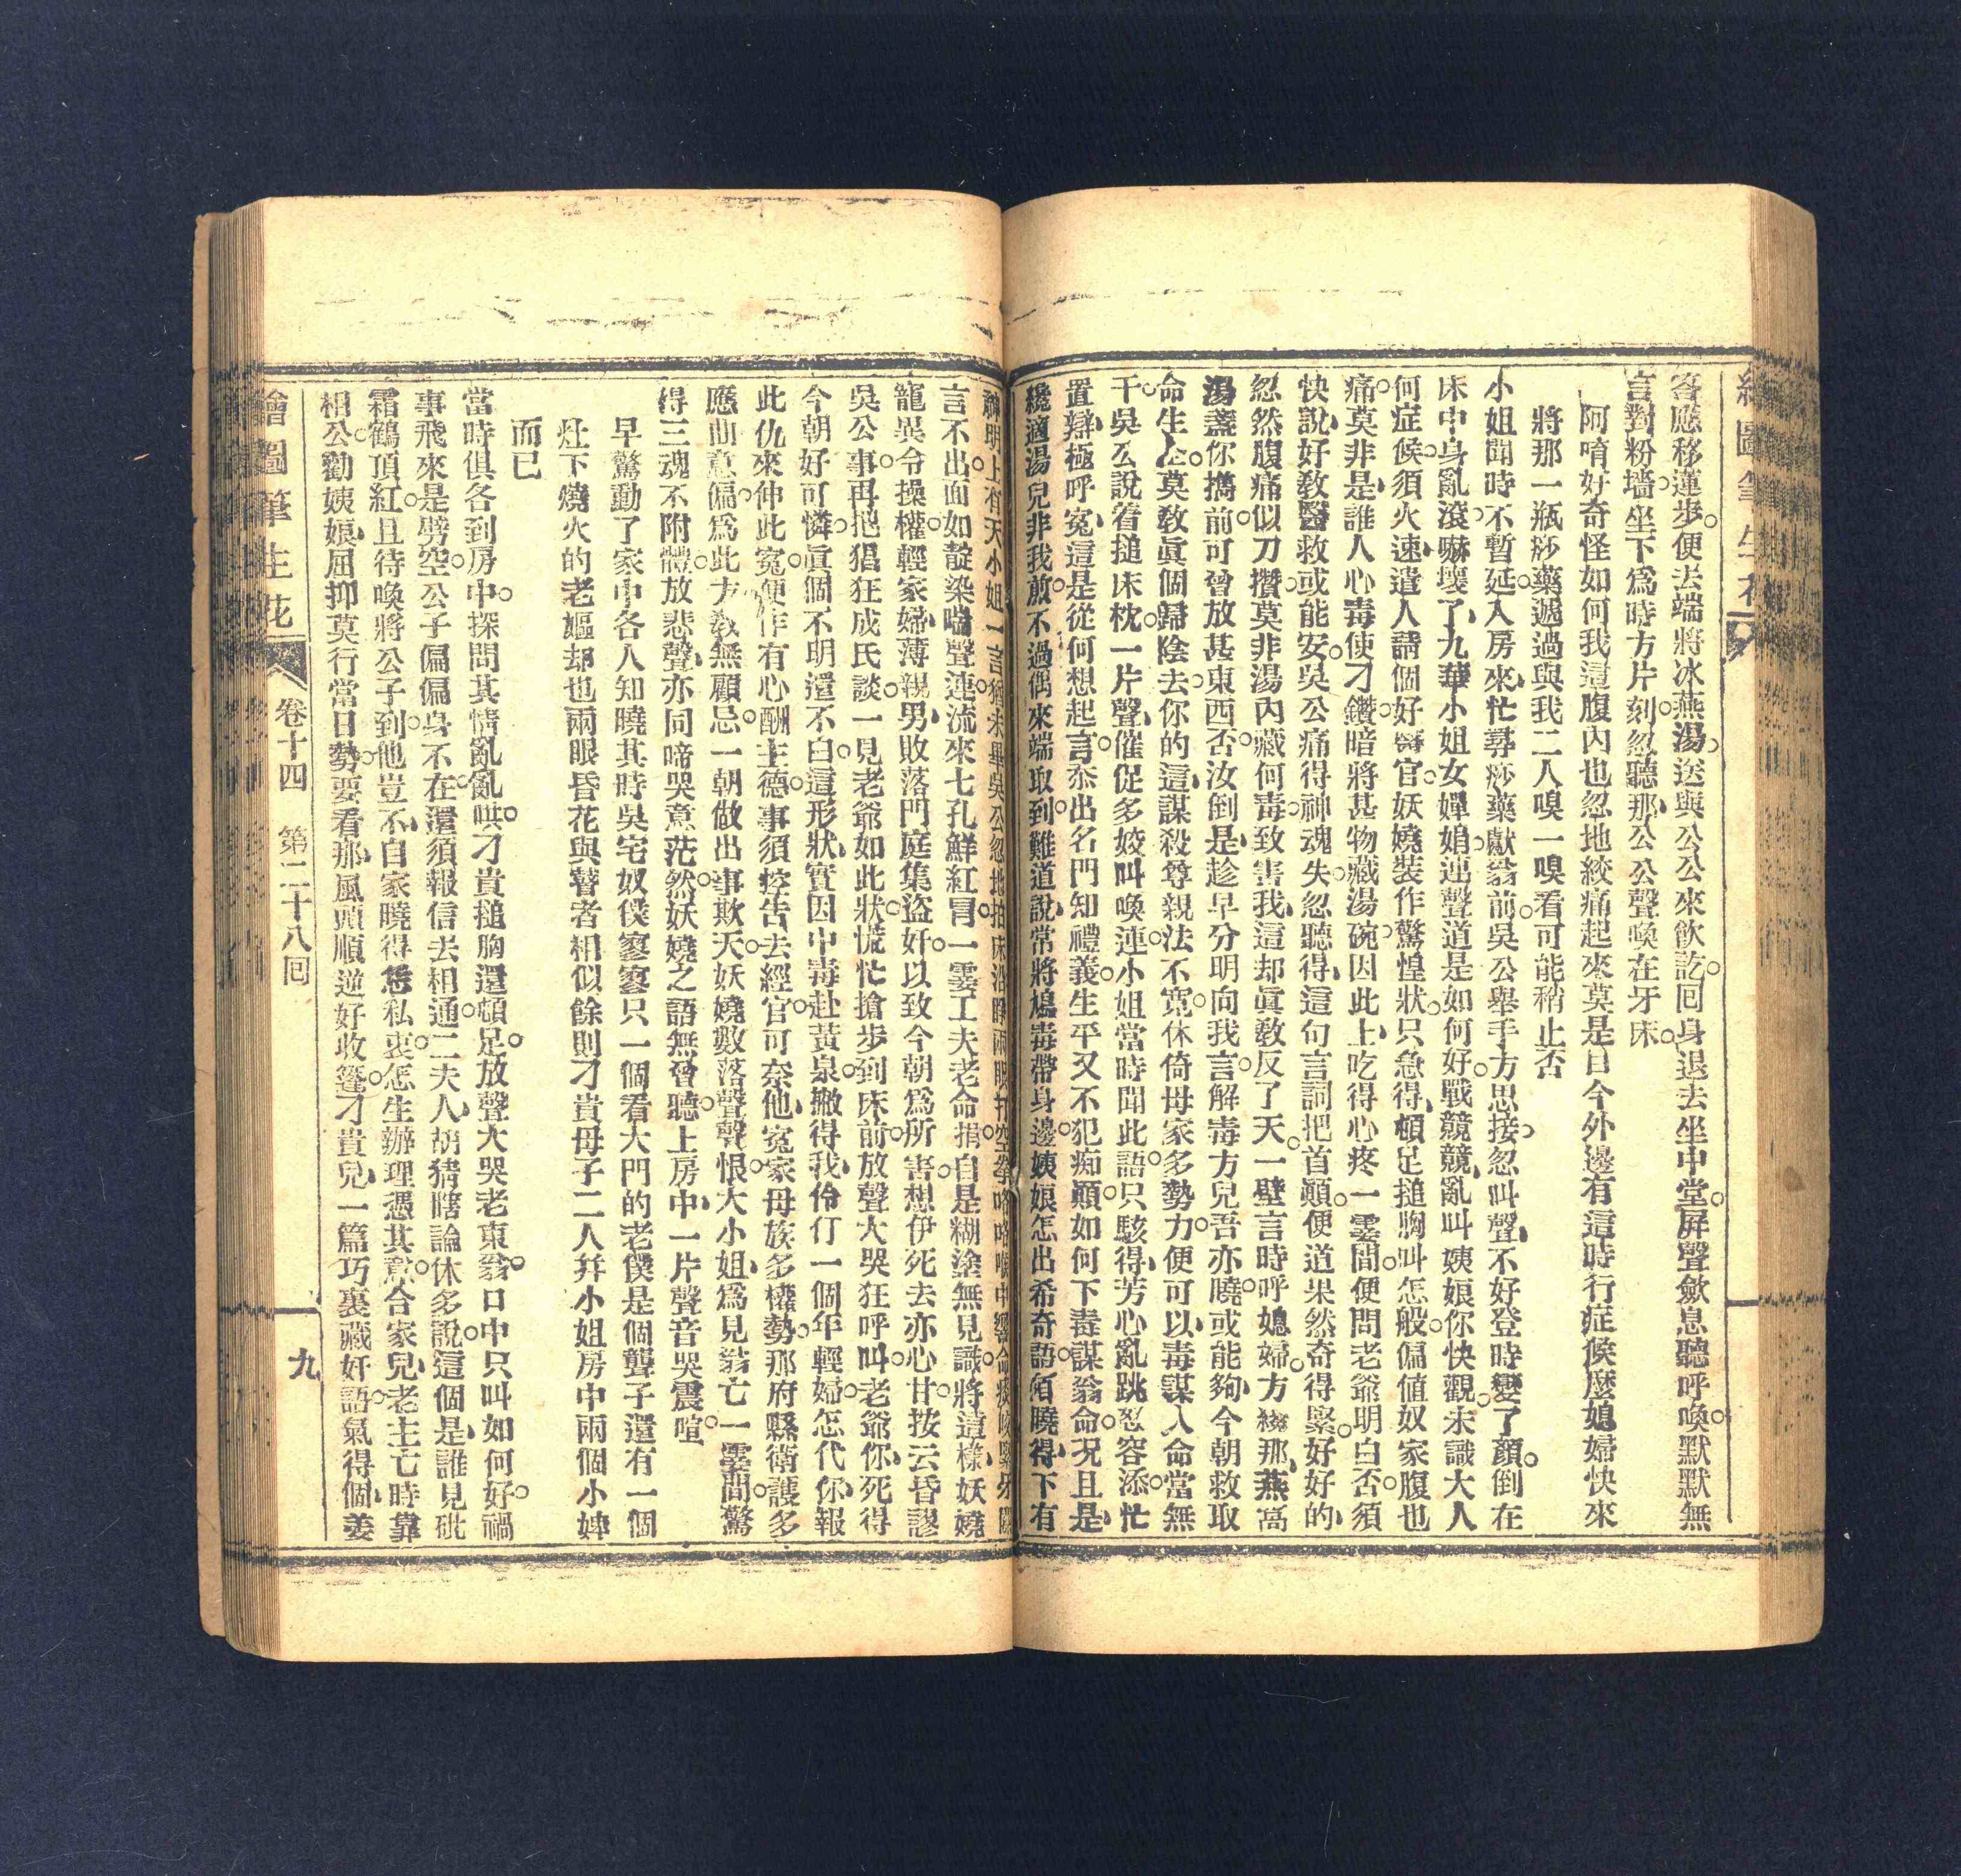 繪圖筆生花
容應移蓮步便去端將冰燕湯送與公公來飲訖囘身退去坐中堂屛聲斂息聽呼喚默默無
言對粉墻坐下爲時方片刻忽聽那公公聲喚在牙床
阿唷好奇怪如何我這腹內也忽地絞痛起來莫是日今外邊有這時行症候麼媳婦快來
將那一瓶痧藥遞過與我二人嗅一嗅看可能稍止否
小姐聞時不暫延入房來忙尋痧藥獻翁前吳公舉手方思接忽叫聲不好登時變了顏倒在
床中身亂滾嚇壞了九華小姐女嬋娟連聲道是如何好戰競競亂叫姨娘你快觀未識大人
何症候須火速遣人請個好醫官妖嬈裝作驚惶狀只急得頓足搥胸叫怎般偏値奴家腹也
痛莫非是誰人心毒使刁鑽暗將甚物藏湯碗因此上吃得心疼一霎間便問老爺明白否須
快說好敎醫救或能安吳公痛得神魂失忽聽得這句言詞把首顚便道果然奇得緊好好的
忽然腹痛似刀攢莫非湯內藏何毒致害我這却眞敎反了天一壁言時呼媳婦方纔那燕窩
湯盞你擕前可曾放甚東西否汝倒是趁早分明向我言解毒方兒吾亦曉或能夠今朝救取
命生全莫敎眞個歸陰去你的這謀殺尊親法不寬休倚母家多勢力便可以毒謀人命當無
干吳公說着搥床枕一片聲催促多姣叫喚連小姐當時聞此語只駭得芳心亂跳忍容添忙
置辯極呼寃這是從何想起言忝出名門知禮義生平又不犯痴顚如何下毒謀翁命况且是
纔適湯兒非我煎不過偶來端取到難道說常將鳩毒帶身邊姨娘怎出希奇語陌曉得下有
神明上有天小姐一言猶未畢吳公忽地拍床沿睜兩眼打空拳咯咯喉中響命殘咬緊牙關
言不出面如靛染喘聲連流來七孔鮮紅冒一霎工夫老命捐自是糊塗無見識將這樣妖嬈
寵異令操權輕家婦薄親男敗落門庭集盜奸以致今朝爲所害想伊死去亦心甘按云昏謬
吳公事再把猖狂成氏談一見老爺如此狀慌忙搶步到床前放聲大哭狂呼叫老爺你死得
今朝好可憐眞個不明還不白這形狀實因中毒赴黃泉撇得我伶仃一個年輕婦怎代你報
此仇來伸此寃便作有心酬主德事須控告去經官可奈他寃家母族多權勢那府縣衛護多
應曲意偏爲此方敎無顧忌一朝做出事欺天妖嬈數落聲聲恨大小姐爲見翁亡一霎間驚
得三魂不附體放悲聲亦同啼哭意茫然妖嬈之語無曾聽上房中一片聲音哭震喧
早驚動了家中各人知曉其時吳宅奴僕寥寥只一個看大門的老僕是個聾子還有一個
灶下燒火的老嫗却也兩眼昏花與瞽者相似餘則刁貴母子二人幷小姐房中兩個小婢
而已
當時俱各到房中探問其情亂亂哄刁貴搥胸還頓足放聲大哭老東翁口中只叫如何好禍
事飛來是劈空公子偏偏身不在還須報信去相通二夫人胡猜瞎論休多說這個是誰見砒
霜鶴頂紅且待喚將公子到他豈不自家曉得恁私衷怎生辦理憑其意合家兒老主亡時靠
相公勸姨娘屈抑莫行當日勢要看那風頭順逆好收篷刁貴兒一篇巧裏藏奸語氣得個姜
繪圖筆生花 卷十四 第二十八囘 九